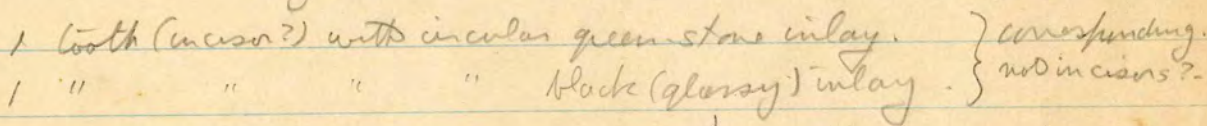 1 tooth (incisor?) with circular green stone inlay. } corresponding.
1 " " " " black (glossy) inlay. } not incisors?-